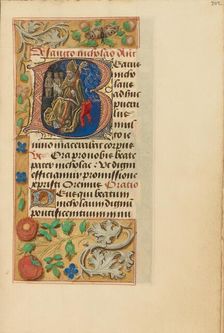 De sancto nicholao Ant
Beatus
nicho
laus
ad huc
puerul
lus
mul
to ie
iunio macerabat corpus
Ora pro nobis beate
pater nicholae Ut digni
efficiamur promissione
xpristi Oremus Oratio
Deus qui beatum
nicholaum digni
pontificem tuum in